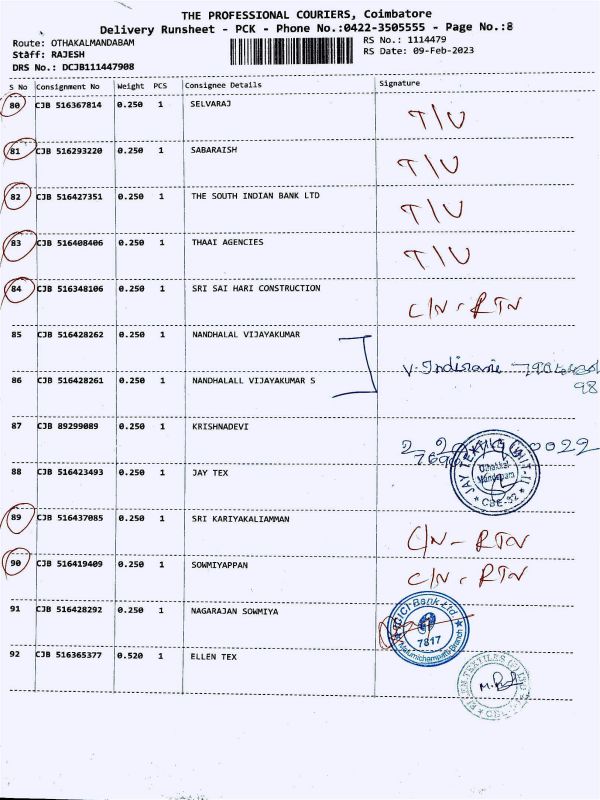 THE PROFESSIONAL COURIERS, Coimbatore
Delivery Runsheet - PCK - Phone No.:0422-3505555 - Page No.:8
Route: OTHAKALMANDABAM
RS No.: 1114479
Staff: RAJESH
RS Date: 09-Feb-2023
DRS No.: DCJB111447908
S No Consignment No Weight PCS Consignee Details Signature
80 CJB 516367814 0.250 1 SELVARAJ T/U
81 CJB 516293220 0.250 1 SABARAISH T/U
82 CJB 516427351 0.250 1 THE SOUTH INDIAN BANK LTD T/U
83 CJB 516408406 0.250 1 THAAI AGENCIES T/U
84 CJB 516348106 0.250 1 SRI SAI HARI CONSTRUCTION C/N - RTN
85 CJB 516428262 0.250 1 NANDHALAL VIJAYAKUMAR
V. Indirani
86 CJB 516428261 0.250 1 NANDHALALL VIJAYAKUMAR S
98
87 CJB 89299089 0.250 1 KRISHNADEVI
88 CJB 516423493 0.250 1 JAY TEX
JAY TEXTILE (UNIT-I)
Othakkal
Mandapam
CBE-32
89 CJB 516437085 0.250 1 SRI KARIYAKALIAMMAN C/N - RTN
90 CJB 516419409 0.250 1 SOWMIYAPPAN C/N - RTN
91 CJB 516428292 0.250 1 NAGARAJAN SOWMIYA
ICICI Bank Ltd
7817
Branch
92 CJB 516365377 0.520 1 ELLEN TEX
ELLEN TEXTILES (P) LTD